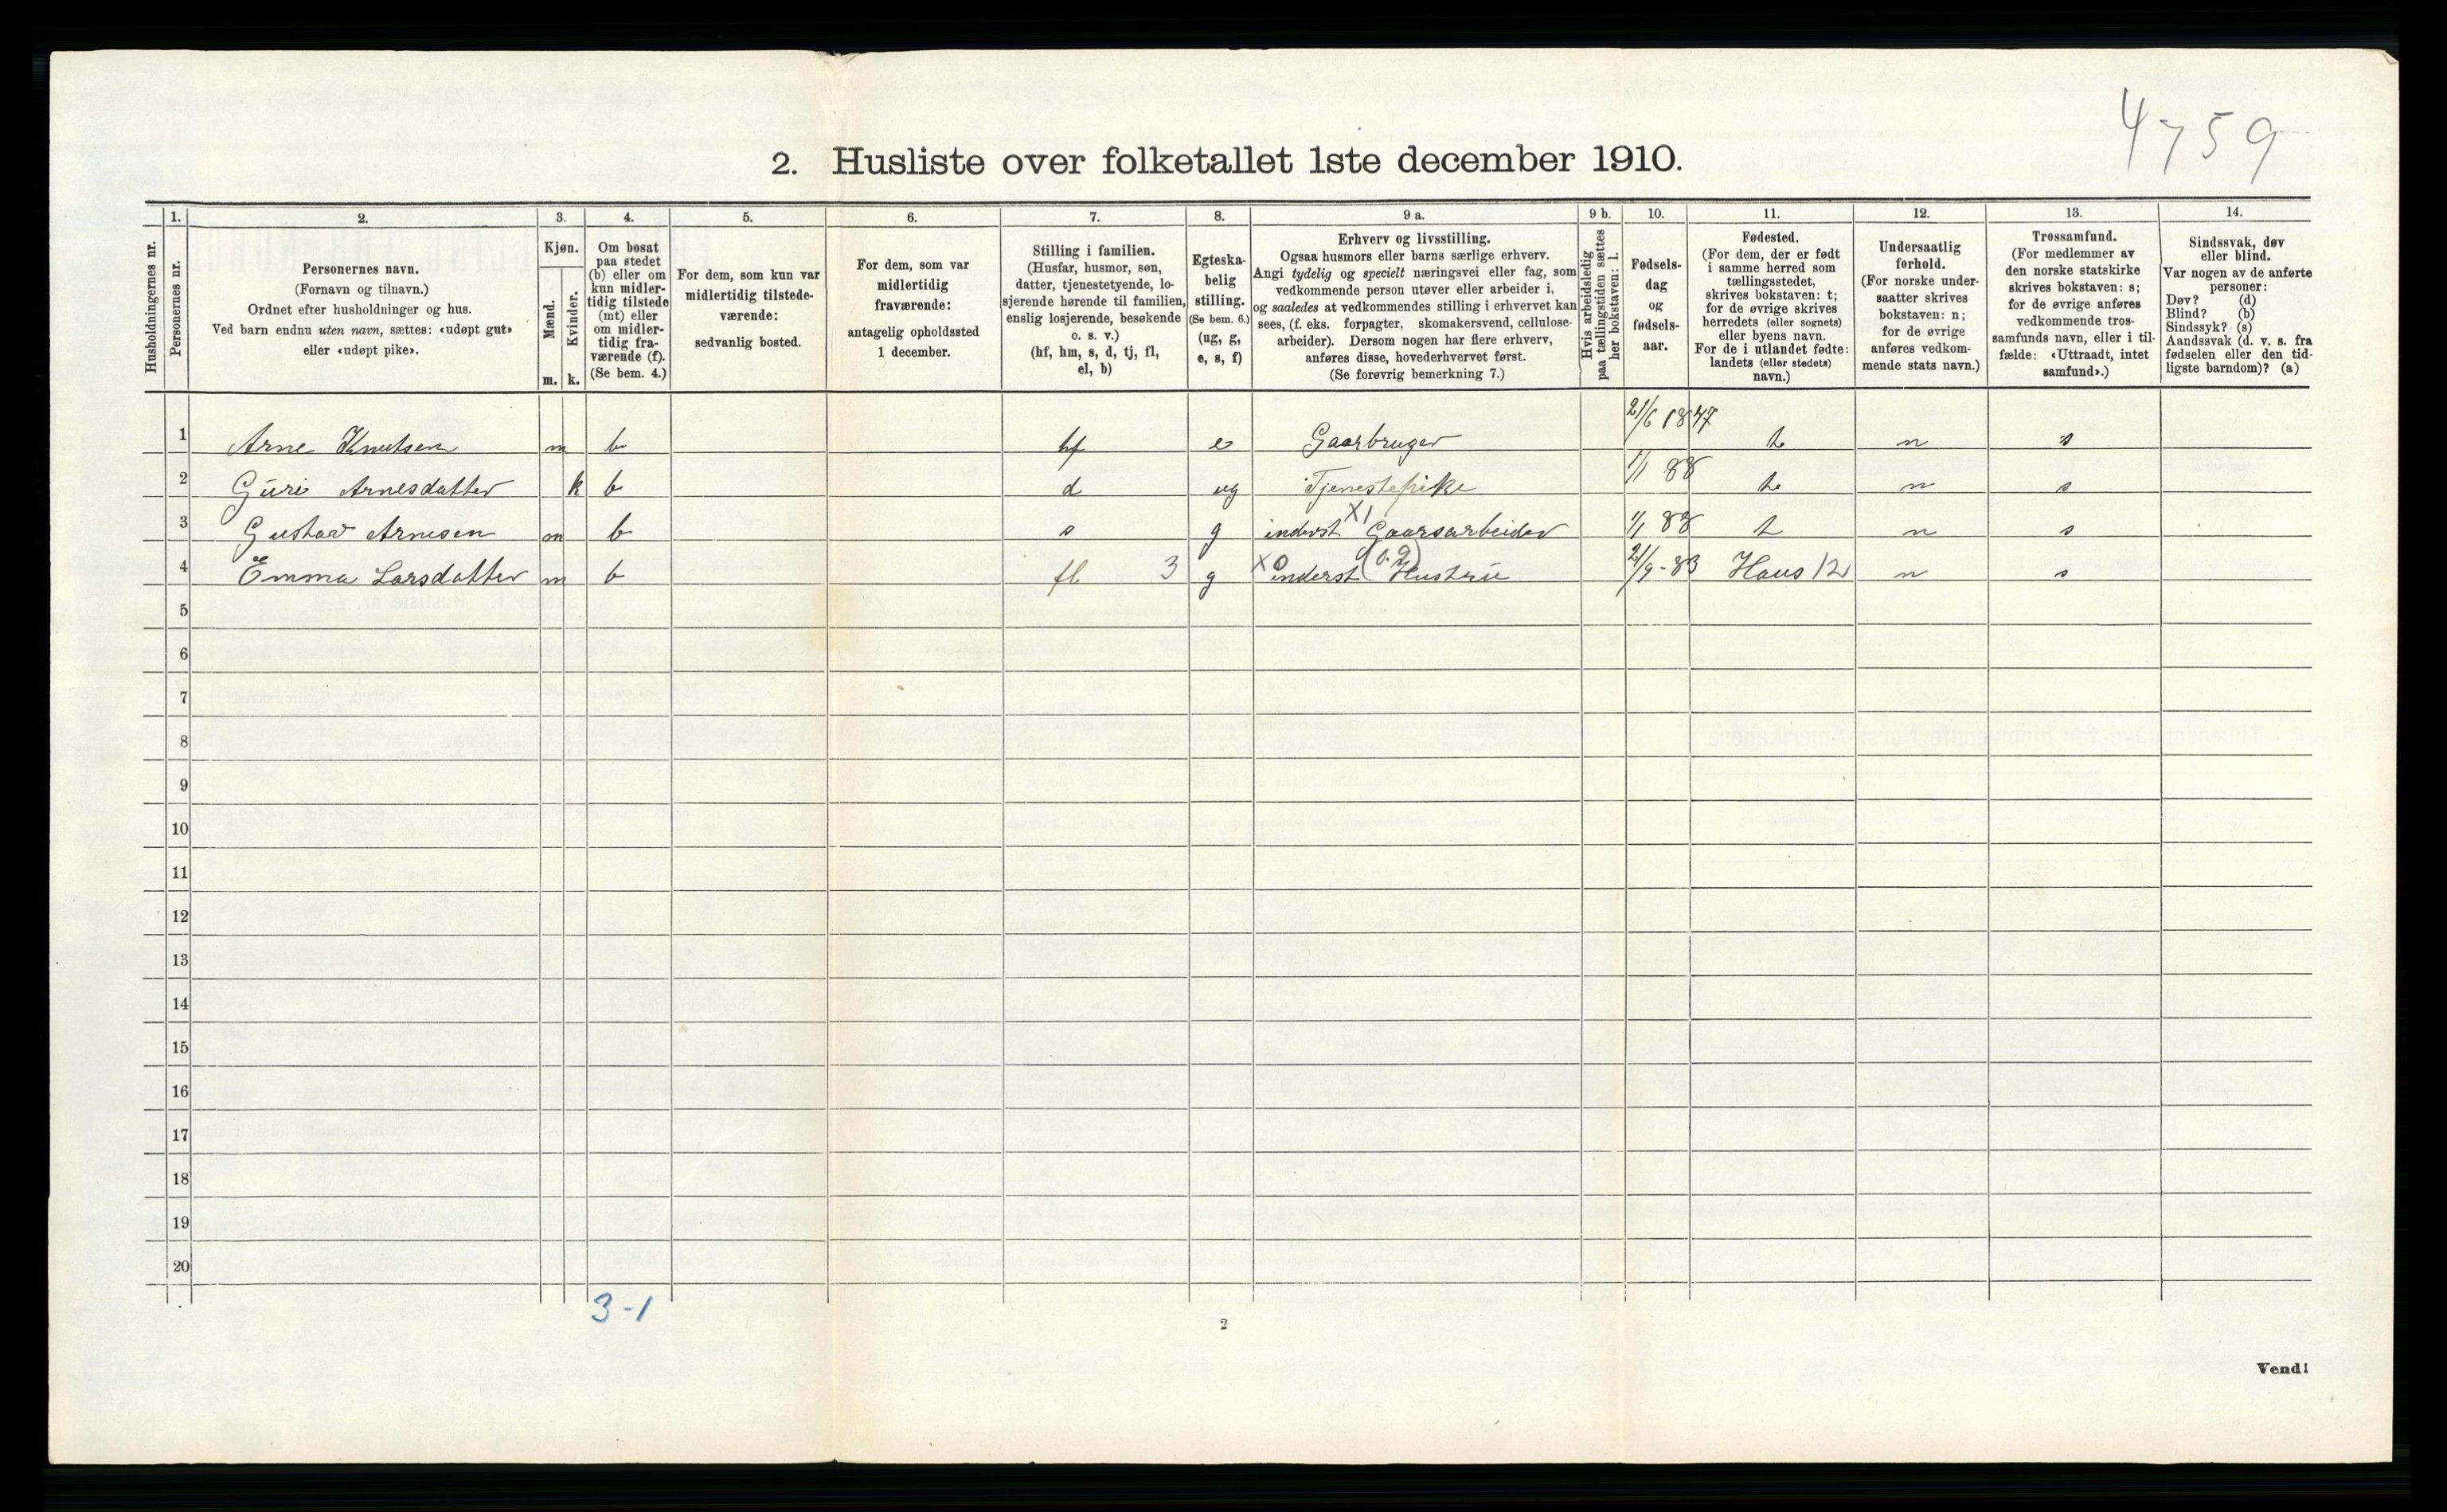 4759
2. Husliste over folketallet 1ste december 1910.
Husholdningernes nr.
1.
Personernes nr.
2.
Personernes navn.
(Fornavn og tilnavn.)
Ordnet efter husholdninger og hus.
Ved barn endnu uten navn, sættes: «udøpt gut»
eller «udøpt pike».
3.
Kjøn.
Mænd.
Kvinder.
m. k.
4.
Om bosat
paa stedet
(b) eller om
kun midler-
tidig tilstede
(mt) eller
om midler-
tidig fra-
værende (f).
(Se bem. 4.)
5.
For dem, som kun var
midlertidig tilstede-
værende:
sedvanlig bosted.
6.
For dem, som var
midlertidig
fraværende:
antagelig opholdssted
1 december.
7.
Stilling i familien.
(Husfar, husmor, søn,
datter, tjenestetyende, lo-
sjerende hørende til familien,
enslig losjerende, besøkende
o. s. v.)
(hf, hm, s, d, tj, fl,
el, b)
8.
Egteska-
belig
stilling.
(Se bem. 6.)
(ug, g,
e, s, f)
9 a.
Erhverv og livsstilling.
Ogsaa husmors eller barns særlige erhverv.
Angi tydelig og specielt næringsvei eller fag, som
vedkommende person utøver eller arbeider i,
og saaledes at vedkommendes stilling i erhvervet kan
sees, (f. eks. forpagter, skomakersvend, cellulose-
arbeider). Dersom nogen har flere erhverv,
anføres disse, hovederhvervet først.
(Se forøvrig bemerkning 7.)
9 b.
Hvis arbeidsledig
paa tællingstiden sættes
her bokstaven: l.
10.
Fødsels-
dag
og
fødsels-
aar.
11.
Fødested.
(For dem, der er født
i samme herred som
tællingsstedet,
skrives bokstaven: t;
for de øvrige skrives
herredets (eller sognets)
eller byens navn.
For de i utlandet fødte:
landets (eller stedets)
navn.)
12.
Undersaatlig
forhold.
(For norske under-
saatter skrives
bokstaven: n;
for de øvrige
anføres vedkom-
mende stats navn.)
13.
Trossamfund.
(For medlemmer av
den norske statskirke
skrives bokstaven: s;
for de øvrige anføres
vedkommende tros-
samfunds navn, eller i til-
fælde: «Uttraadt, intet
samfund».)
14.
Sindssvak, døv
eller blind.
Var nogen av de anførte
personer:
Døv? (d)
Blind? (b)
Sindssyk? (s)
Aandssvak (d. v. s. fra
fødselen eller den tid-
ligste barndom)? (a)
1 Arne Knutsen m b hf e Gaarbruger 21/6 1847 t n s
2 Guri Arnesdatter k b d ug Tjenestepike 1/1 88 t n s
3 Gustav Arnesen m b s g inderst X1 Gaarsarbeider 1/1 88 t n s
4 Emma Larsdatter m b fl 3 g X0 inderst Hustrue 21/9-83 Haus 12 n s
5
6
7
8
9
10
11
12
13
14
15
16
17
18
19
20
3-1
2
Vend!